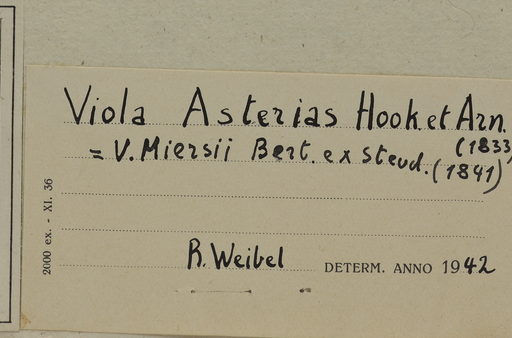 Viola Asterias Hook et Arn.
(1833)
= V. Miersii Bert. ex steud. (1841)
2000 ex. - XI. 36
R. Weibel DETERM. ANNO 1942